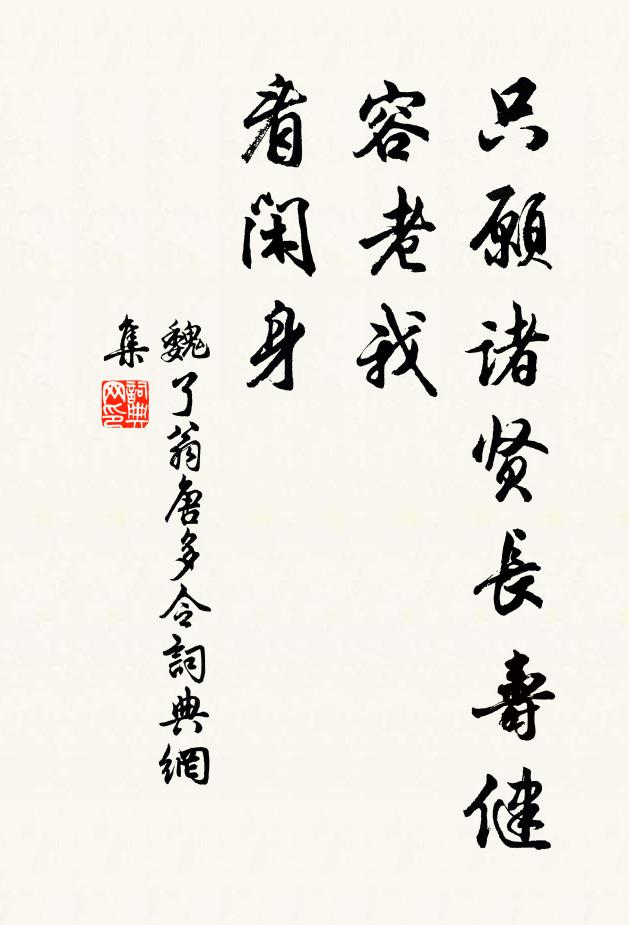 只願諸贤長壽健
容老我
看閑身
魏了翁唐多令詞典網
集
詞典
网印